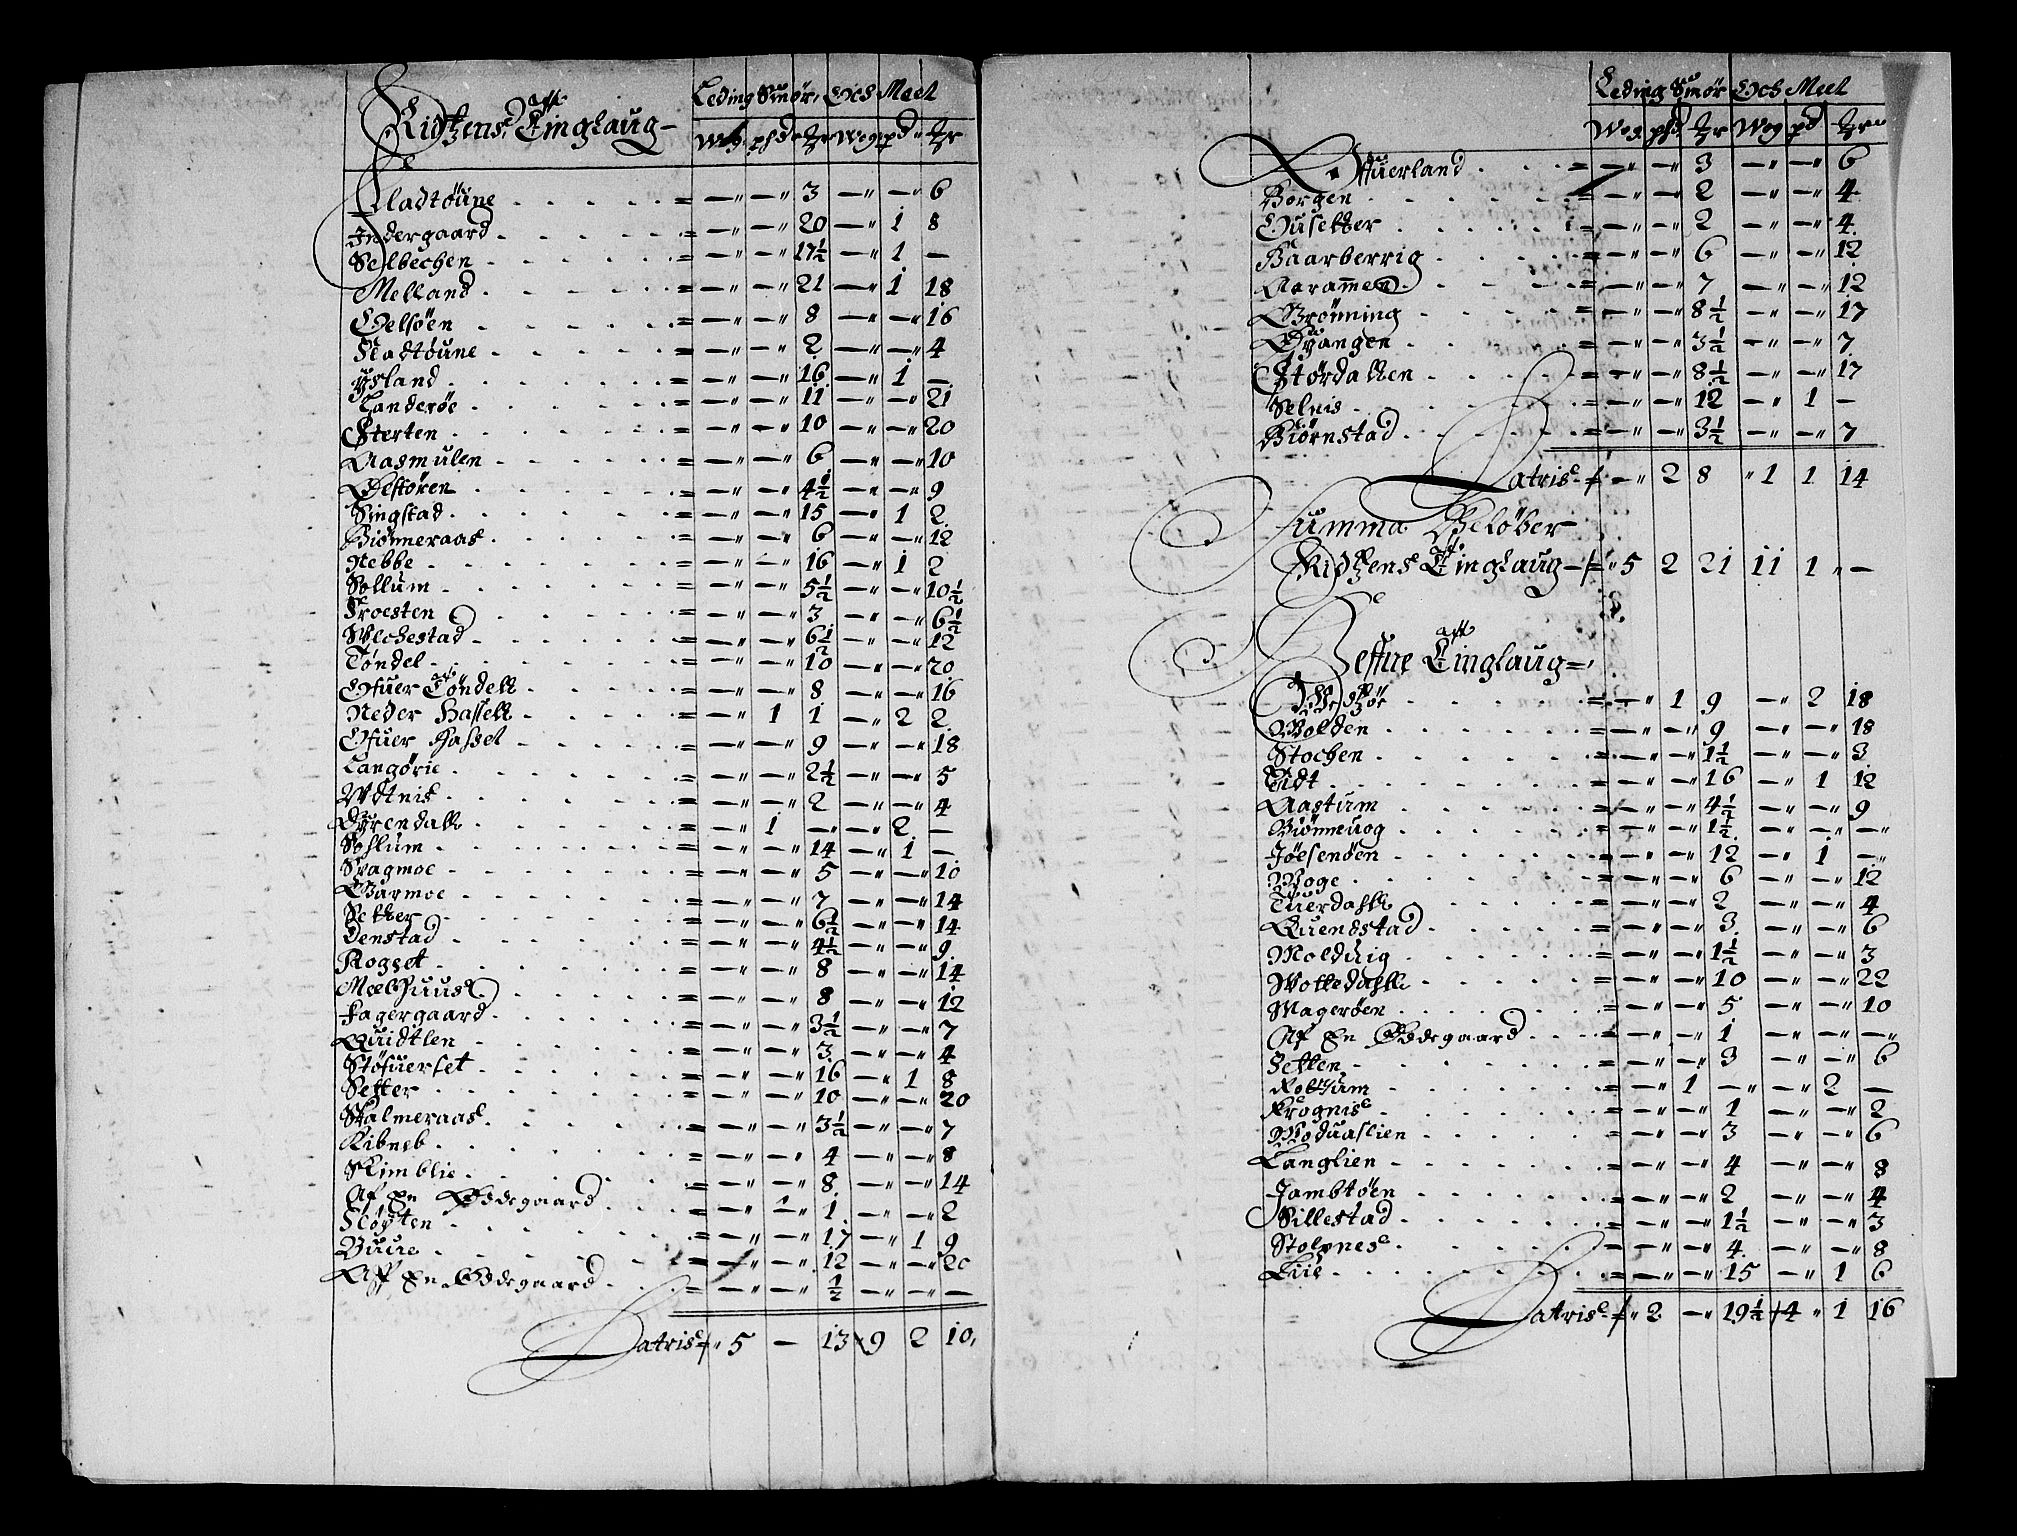 Leding Smør, Och Meel
Ridtzens aff Tinglaug
Wog. phd. tr Wog pd. tr
Sladtøüne . . . . . = — " — " 3 — " — " 6
Indergaard . . . . . = — " — " 20 — " 1 8
Selbechen . . . . . = — " — " 17½ — " 1 —
Melland . . . . . = — " — " 21 — " 1 18
Gelsøen . . . . . = — " — " 8 — " — " 16
Sladtøüne . . . . . = — " — " 2 — " — " 4
Ysland . . . . . = — " — " 16 — " 1 —
Landerøe . . . . . = — " — " 11 — " — " 21
Sterten . . . . . = — " — " 10 — " — " 20
Aasmulen . . . . . = — " — " 6 — " — " 10
Østøren . . . . . = — " — " 4½ — " — " 9
Singstad . . . . . = — " — " 15 — " 1 2
Biønneraas . . . . . = — " — " 6 — " — " 12
Nebbe . . . . . = — " — " 16 — " 1 2
Sollum . . . . . = — " — " 5½ — " — " 10½
Froesten . . . . . = — " — " 3 — " — " 6½
Wlchestad . . . . . = — " — " 6½ — " — " 12
Tøndel . . . . . = — " — " 10 — " — " 20
Ofuer Tøndell . . . . . = — " — " 8 — " — " 16
Neder Hassell . . . . . = — " 1 1 — " 2 2
Ofuer Hasset . . . . . = — " — " 9 — " — " 18
Langørie . . . . . = — " — " 2½ — " — " 5
Wdtnis . . . . . = — " — " 2 — " — " 4
Dÿrendall . . . . . = — " 1 — " — " 2 —
Sohlum . . . . . = — " — " 14 — " 1 —
Svagmoe . . . . . = — " — " 5 — " — " 10
Warmoe . . . . . = — " — " 7 — " — " 14
Setter . . . . . = — " — " 6½ — " — " 14
Denstad . . . . . = — " — " 4½ — " — " 9
Rogset . . . . . = — " — " 8 — " — " 14
Melhuus . . . . . = — " — " 8 — " — " 12
Fagergaard . . . . . = — " — " 3½ — " — " 7
Quidtlen . . . . . = — " — " 3 — " — " 4
Støfuerset . . . . . = — " — " 16 — " 1 8
Setter . . . . . = — " — " 10 — " — " 20
Skalmeraas . . . . . = — " — " 3½ — " — " 7
Kibneb . . . . . = — " — " 4 — " — " 8
Skimblie . . . . . = — " — " 8 — " — " 14
Af En Ødegaard . . . = — " — " 1 — " — " 2
Sløyten . . . . . = — " — " 17 — " 1 9
Buue . . . . . = — " — " 12 — " — " 20
Aff En Ødegaard . . . = — " — " ½ — " — " —
Latris " 5 — 13 9 2 10
Leding Smør Och Meel
Wog. phd. tr Wog pd tr
Offuerland . . . . = — " — " 3 — " — " 6
Borgen . . . . . = — " — " 2 — " — " 4
Husetter . . . . . = — " — " 2 — " — " 4
Baarberrig . . . . . = — " — " 6 — " — " 12
Aaramen . . . . . = — " — " 7 — " — " 12
Grønning . . . . . = — " — " 8½ — " — " 17
Øÿangen . . . . . = — " — " 3½ — " — " 7
Størdallen . . . . . = — " — " 8½ — " — " 17
Selnis . . . . . = — " — " 12 — " 1 —
Biørnstad . . . . . = — " — " 3½ — " — " 7
Latris — " 2 8 " 1 1 14
Summa Beløber
Ridtzens aff Tinglaug " 5 2 21 11 1 " —
Heffne aff Tinglaug
. . . . . = — " 1 9 — " 2 18
Wolden . . . . . = — " — " 9 — " — " 18
Stochen . . . . . = — " — " 1½ — " — " 3
Eidt . . . . . = — " — " 16 — " 1 12
Aastum . . . . . = — " — " 4½ — " — " 9
Biønnuog . . . . . = — " — " 1½ — " — " — "
Jøesenøen . . . . . = — " — " 12 — " 1 — "
Woge . . . . . = — " — " 6 — " — " 12
Tüerdahll . . . . . = — " — " 2 — " — " 4
Quenstad . . . . . = — " — " 3 — " — " 6
Molduig . . . . . = — " — " 1½ — " — " 3
Wolledahll . . . . . = — " — " 10 — " — " 22
Magerøen . . . . . = — " — " 5 — " — " 10
Af En Ødegaard . . . . = — " — " 1 — " — " — "
Setten . . . . . = — " — " 3 — " — " 6
Rolhum . . . . . = — " 1 — " — " 2 —
Krognis . . . . . = — " — " 1 — " — " 2
Woduaslien . . . . . = — " — " 3 — " — " 6
Langlien . . . . . = — " — " 4 — " — " 8
Jambtøen . . . . . = — " — " 2 — " — " 4
Sillestad . . . . . = — " — " 1½ — " — " 3
Stolpnes . . . . . = — " — " 4 — " — " 8
Liie . . . . . = — " — " 15 — " 1 6
Latris " 2 — " 19½ 4 " 1 16